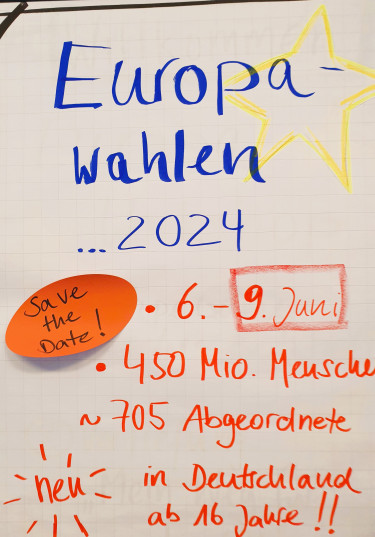 Europa-
wahlen
...2024
Save
the
Date!
• 6.-9. Juni
• 450 Mio. Mensche
~ 705 Abgeordnete
neu
in Deutschland
ab 16 Jahre!!